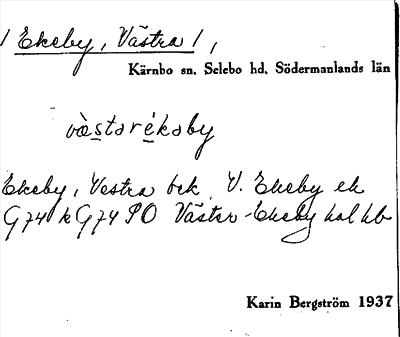 / Ekeby, Västra /,
Kärnbo sn. Selebo hd. Södermanlands län
vàstərékəby
Ekeby, Vestra bek V. Ekeby ek
G74 k G74 PO Väster-Ekeby hal hb
Karin Bergström 1937